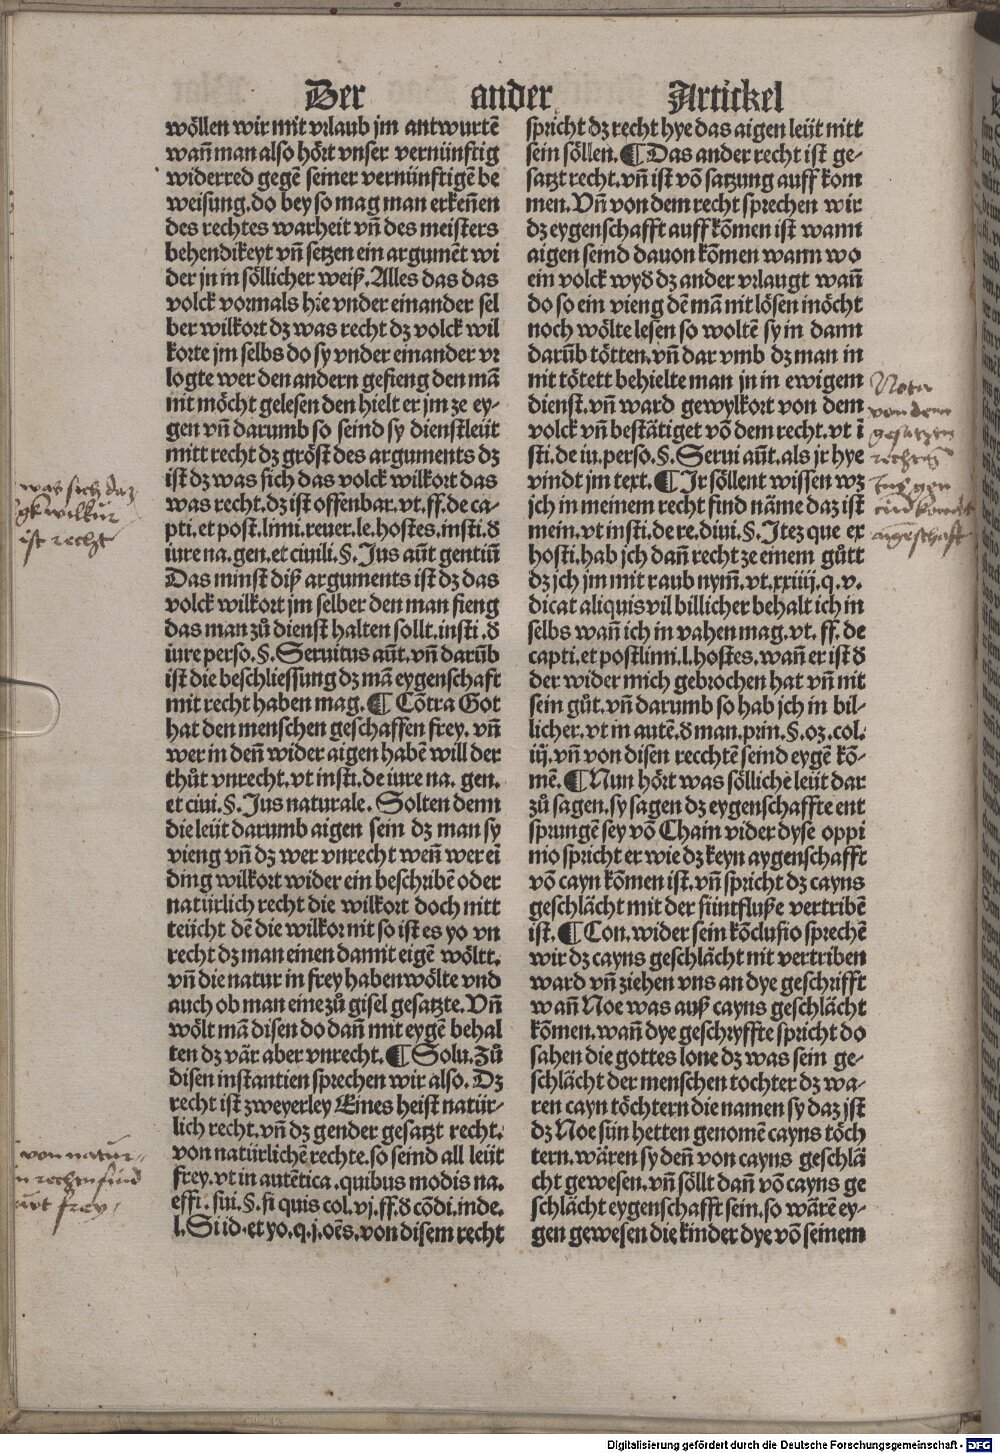 Der ander Artickel
wöllen wir mit vrlaub jm antwurtē
wañ man also hört vnser vernünftig
widerred gegē seiner vernünftigē be
weisung. do bey so mag man erkeñen
des rechtes warheit vñ des meisters
behendikeyt vñ setzen ein argumēt wi
der jn in söllicher weiß. Alles das das
volck vormals hie vnder einander sel
ber wilkort dz was recht dz volck wil
korte jm selbs do sy vnder einander vr
logte wer den andern gefieng den mā
nit möcht gelesen den hielt er jm ze ey-
gen vñ darumb so seind sy dienstleüt
mitt recht dz gröst des arguments dz
ist dz was sich das volck wilkort das
was recht. dz ist offenbar. vt. ff. de ca-
pti. et post. limi. reuer. le. hostes. insti. d̄
iure na. gen. et ciuili. §. Jus aūt gentiū
Das minst diß arguments ist dz das
volck wilkort jm selber den man fieng
das man zů dienst halten sollt. insti. d̄
iure perso. §. Seruitus aūt. vñ darūb
ist die beschliessung dz mā eygenschaft
mit recht haben mag. ¶ Cōtra Got
hat den menschen geschaffen frey. vñ
wer in deñ wider aigen habē will der
thůt vnrecht. vt insti. de iure na. gen.
et ciui. §. Jus naturale. Solten denn
die leüt darumb aigen sein dz man sy
vieng vñ dz wer vnrecht weñ wer ei
ding wilkort wider ein beschribē oder
natürlich recht die wilkort doch nitt
teücht dē die wilkor nit so ist es yo vn
recht dz man einen damit eigē wöltt.
vñ die natur in frey haben wölte vnd
auch ob man eine zů gisel gesatzte. Vñ
wölt mā disen do dañ mit eygē behal
ten dz vär aber vnrecht. ¶ Solu. Zů
disen instantien sprechen wir also. Dz
recht ist zweyerley Eines heist natür-
lich recht. vñ dz gender gesatzt recht.
von natürlichē rechte. so seind all leüt
frey. vt in autētica. quibus modis na.
effi. sui. §. si quis col. vj. ff. d̄ cōdi. inde.
l. Si id. et yo. q. j. oēs. von disem recht
spricht dz recht hye das aigen leüt nitt
sein söllen. ¶ Das ander recht ist ge-
satzt recht. vñ ist vō satzung auff kom
men. Vñ von dem recht sprechen wir
dz eygenschafft auff kōmen ist wann
aigen seind dauon kōmen wann wo
ein volck wyd̄ dz ander vrlaugt wañ
do so ein vieng dē mā nit lösen möcht
noch wölte lesen so woltē sy in dann
darūb tötten. vñ dar vmb dz man in
nit tötett behielte man jn in ewigem
dienst. vñ ward gewylkort von dem
volck vñ bestätiget vō dem recht. vt ī
sti. de iu. perso. §. Serui aūt. als jr hye
vindt jm text. ¶ Jr söllent wissen wz
jch in meinem recht find näme daz ist
mein. vt insti. de re. diui. §. Itez que ex
hosti. hab jch dañ recht ze einem gůtt
dz jch jm mit raub nym̄. vt. xxiiij. q. v.
dicat aliquis vil billicher behalt ich in
selbs wañ ich in vahen mag. vt. ff. de
capti. et postlimi. l. hostes. wañ er ist d̄
der wider mich gebrochen hat vñ nit
sein gůt. vñ darumb so hab jch in bil-
licher. vt in autē. d̄ man. prin. §. oz. col.
iiij. vñ von disen recchtē seind eygē kō-
mē. ¶ Nun hört was söllichē leüt dar
zů sagen. sy sagen dz eygenschaffte ent
sprungē sey vō Chain vider dyse oppi
nio spricht er wie dz keyn aygenschafft
vō cayn kōmen ist. vñ spricht dz cayns
geschlächt mit der süntfluße vertribē
ist. ¶ Con. wider sein kōclusio sprechē
wir dz cayns geschlächt nit vertriben
ward vñ ziehen vns an dye geschrifft
wañ Noe was auß cayns geschlächt
kōmen. wañ dye geschryffte spricht do
sahen die gottes sone dz was sein ge-
schlächt der menschen tochter dz wa-
ren cayn töchtern die namen sy daz jst
dz Noe sün hetten genomē cayns töch
tern. wären sy deñ von cayns geschlä
cht gewesen. vñ söllt dañ vō cayns ge
schlächt eygenschafft sein. so wärē ey-
gen gewesen die kinder dye vō seinem
was sich daz
wilkur
ist recht
von natur
rechten sind
frey
Nota
von dem
gesatzten
rechten
kompt
Digitalisierung gefördert durch die Deutsche Forschungsgemeinschaft - DFG